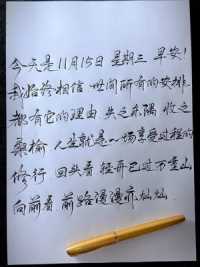 今天是11月15日 星期三 早安!
我始终相信 世间所有的安排
都有它的理由 失之东隅 收之
桑榆 人生就是一场享受过程的
修行 回头看 轻舟已过万重山
向前看 前路漫漫亦灿灿